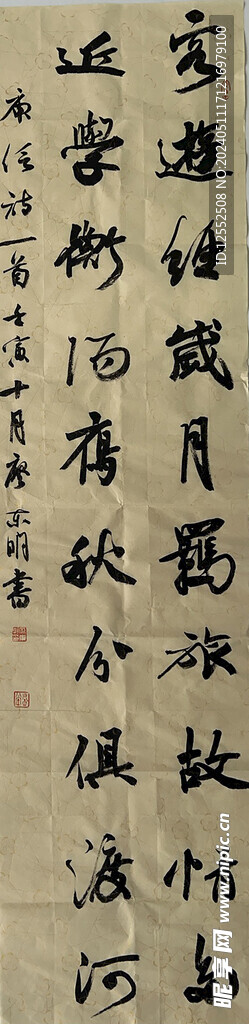 客遊经歲月羈旅故情多
近學衡陽雁秋分俱渡河
庾信诗一首壬寅十月廖东明書
ID:12552508 NO:20240511171216979100
昵享网 www.nipic.cn